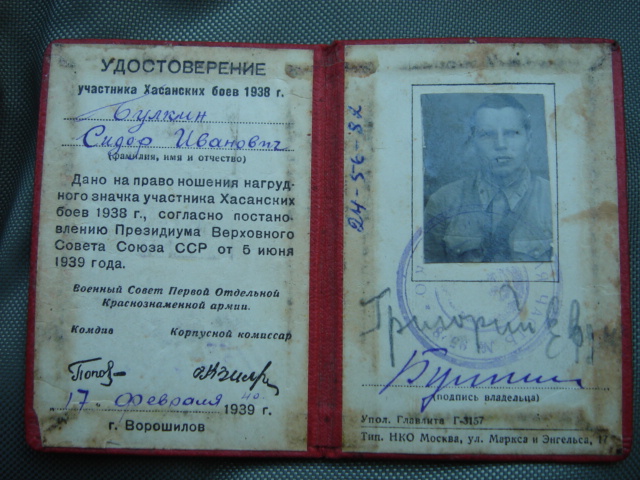 УДОСТОВЕРЕНИЕ
участника Хасанских боев 1938 г.
Булкин
Сидор Иванович
(фамилия, имя и отчество)
Дано на право ношения нагруд-
ного значка участника Хасанских
боев 1938 г., согласно постано-
влению Президиума Верховного
Совета Союза ССР от 5 июня
1939 года.
Военный Совет Первой Отдельной
Краснознаменной армии.
Комдив Корпусной комиссар
Попов
17 февраля 1939 г.
г. Ворошилов
24-56-82
Григорий
(подпись владельца)
Упол. Главлита Г-3157
Тип. НКО Москва, ул. Маркса и Энгельса, 17